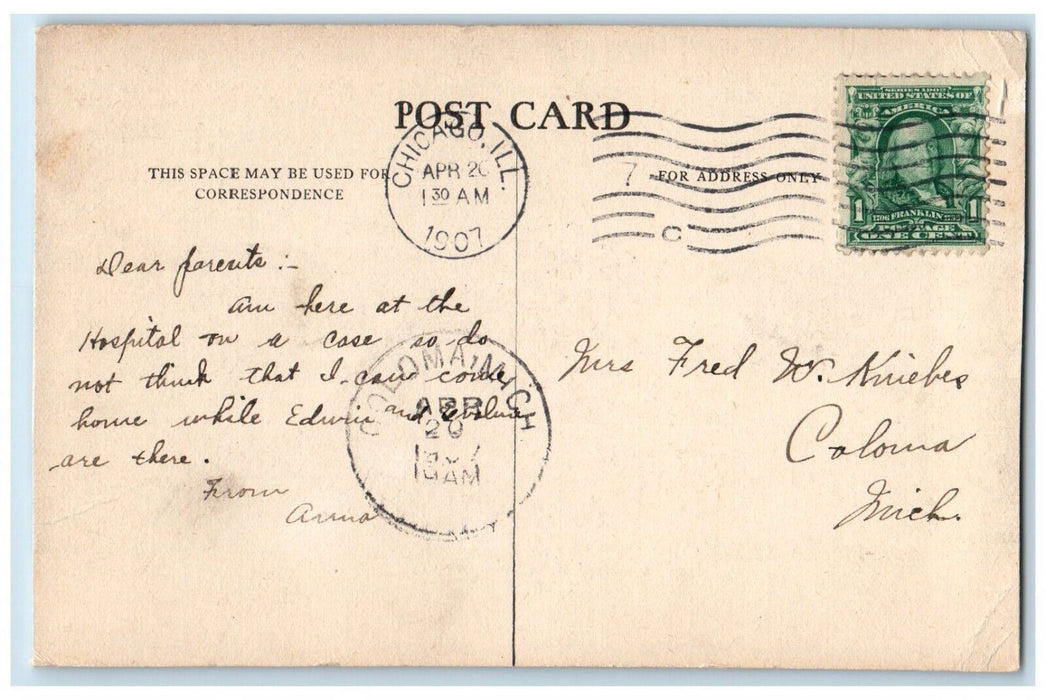 POST CARD
THIS SPACE MAY BE USED FOR
CORRESPONDENCE
FOR ADDRESS ONLY
CHICAGO, ILL.
APR 20
1 30 AM
1907
7
C
SERIES 1902
UNITED STATES OF
AMERICA
1 1
1706 FRANKLIN 1790
POSTAGE
ONE CENT
Dear parents :-
am here at the
Hospital on a case so do
not think that I can come
home while Edwin and
are there.
From
Anna
COLOMA, MICH
APR
20
AM
Mrs Fred W. Kniebes
Coloma
Mich.